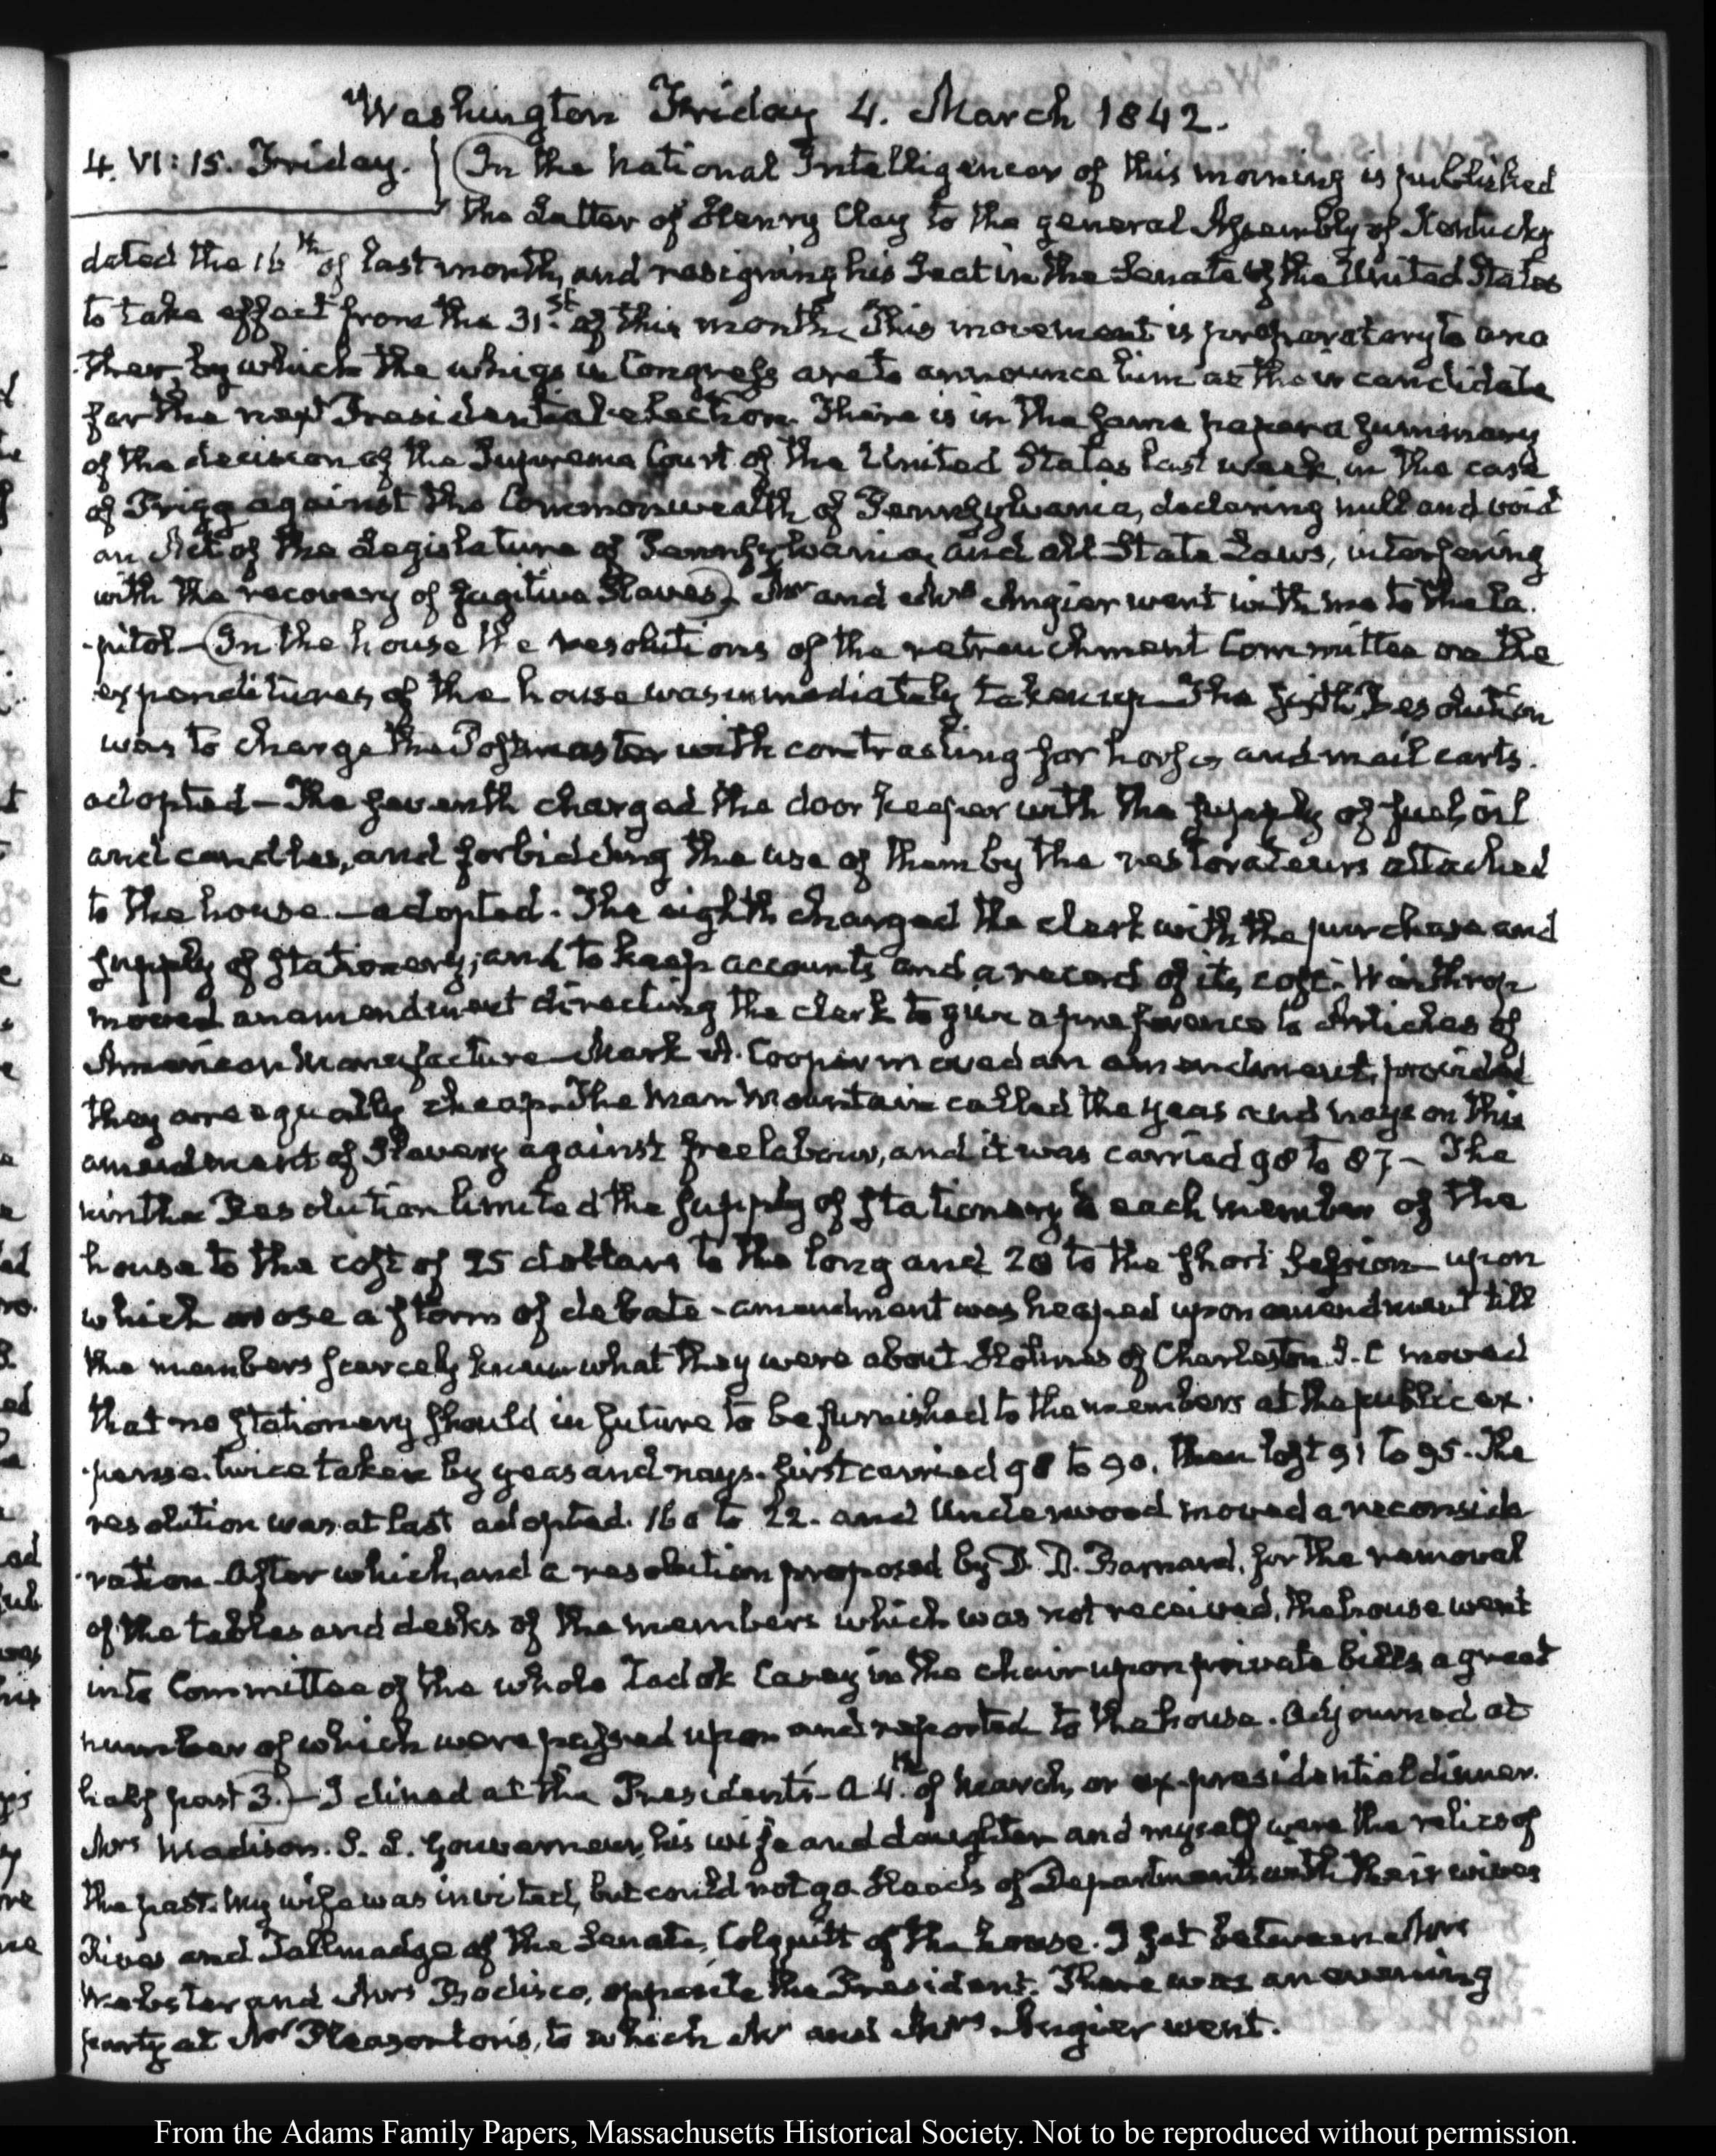 Washington Friday 4. March 1842.
4. VI: 15. Friday. In the National Intelligencer of this morning is published
the Letter of Henry Clay to the general Assembly of Kentucky
dated the 16th of last month, and resigning his Seat in the Senate of the United States
to take effect from the 31st of this month. This movement is preparatory to ano
-ther, by which the whigs in Congress are to announce him as their candidate
for the next Presidential election. There is in the same paper a summary
of the decision of the Supreme Court of the United States last week, in the case
of Prigg against the Commonwealth of Pennsylvania, declaring null and void
an Act of the Legislature of Pennsylvania, and all State Laws, interfering
with the recovery of fugitive Slaves. Mr and Mrs Angier went with me to the Ca-
-pitol - In the house the resolutions of the retrenchment Committee on the
expenditures of the house was immediately taken up - The sixth Resolution
was to charge the Postmaster with contracting for horses and mail carts.
adopted - The seventh charged the door keeper with the supply of fuel, oil
and candles, and forbidding the use of them by the restorateurs attached
to the house - adopted. The eighth charged the clerk with the purchase and
supply of stationery, and to keep accounts and a record of its cost. Winthrop
moved an amendment directing the clerk to give a preference to Articles of
American Manufacture - Mark A. Cooper moved an amendment, provided
they are equally cheap. The Man Mountain called the yeas and nays on this
amendment of Slavery against free labour, and it was carried 98 to 87 - The
ninth Resolution limited the supply of stationery to each member of the
house to the cost of 25 dollars to the long and 20 to the short Session - upon
which arose a storm of debate - amendment was heaped upon amendment till
the members scarcely knew what they were about. Holmes of Charleston S. C moved
that no stationery should in future to be furnished to the members at the public ex-
-pense. twice taken by yeas and nays. first carried 98 to 90. then lost 91 to 95. The
resolution was at last adopted. 160 to 22. and Underwood moved a reconside
-ration. After which, and a resolution proposed by D. D. Barnard, for the removal
of the tables and desks of the members which was not received, the house went
into Committee of the whole Zadok Casey in the chair upon private bills, a great
number of which were passed upon and reported to the house. Adjourned at
half past 3. - I dined at the President's - a 4th of March, or ex-presidential dinner.
Mrs Madison. S. L. Gouverneur, his wife and daughter and myself were the relics of
the past. My wife was invited, but could not go. Heads of Departments with their wives
Rives and Tallmadge of the Senate, Colquitt of the house. I sat between Mrs
Webster and Mrs Bodisco, opposite the President. There was an evening
party at Mr Pleasonton's, to which Mr and Mrs Angier went.
From the Adams Family Papers, Massachusetts Historical Society. Not to be reproduced without permission.